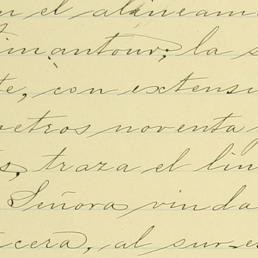 n el alineam
imantour; la s
te, con extensi
metros noventa y
s, traza el lin
Señora viuda
cera, al sur-es